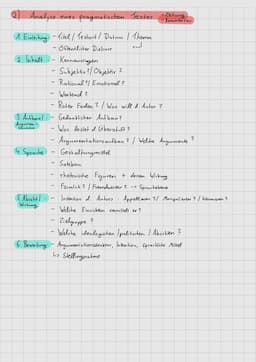 Analyse eines pragmatischen Textes
1. Einleitung - Titel / Textart / Datum / Thema
- Öffentlicher Diskurs
2. Inhalt - Kernaussagen
- Subjektiv? / Objektiv?
- Rational? / Emotional?
- Wertend?
- Roter Faden? / Was will d. Autor?
3. Aufbau / - Gedanklicher Aufbau?
- Was leistet d. Überschrift?
- Argumentationsaufbau? / Welche Argumente?
4. Sprache - Gestaltungsmittel
- Satzbau
- rhetorische Figuren + deren Wirkung
- Förmlich? / Fremdwörter? → Sprachebene
5. Absicht / - Intention d. Autors: Appellieren? / Manipulieren? /
Wirkung - Welche Einsichten vermittelt er?
- Zielgruppe?
- Welche ideologischen / politischen / Absichten?
6. Bewertung - Argumentationsstruktur, Intention, sprachliche Mittel
↳ Stellungnahme